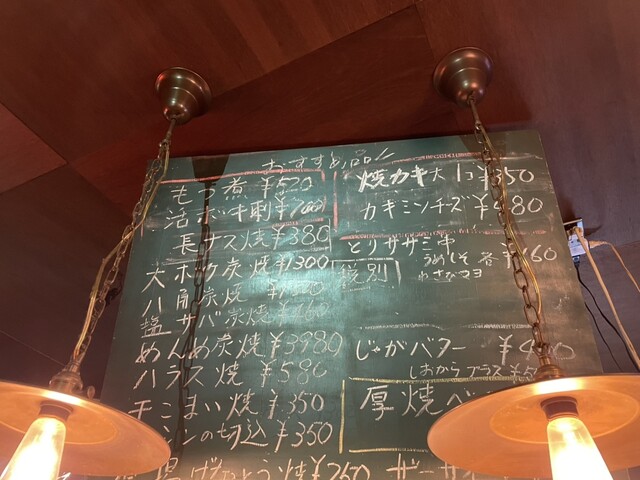 おすすめ品！
もつ煮 ¥520
活ホッキ刺 ¥700
長ナス焼 ¥380
大ホッケ炭焼 ¥1300
八角炭焼
塩サバ炭焼
めんめ炭焼 ¥3980
ハラス焼 ¥580
チこまい焼 ¥350
の切込 ¥350
¥260
焼カキ大 1コ ¥350
カキミンチーズ ¥480
とりササミ串
うめしそ 各
わさびマヨ
税別
じゃがバター
しおからプラス
厚焼ベ
ザーサイ